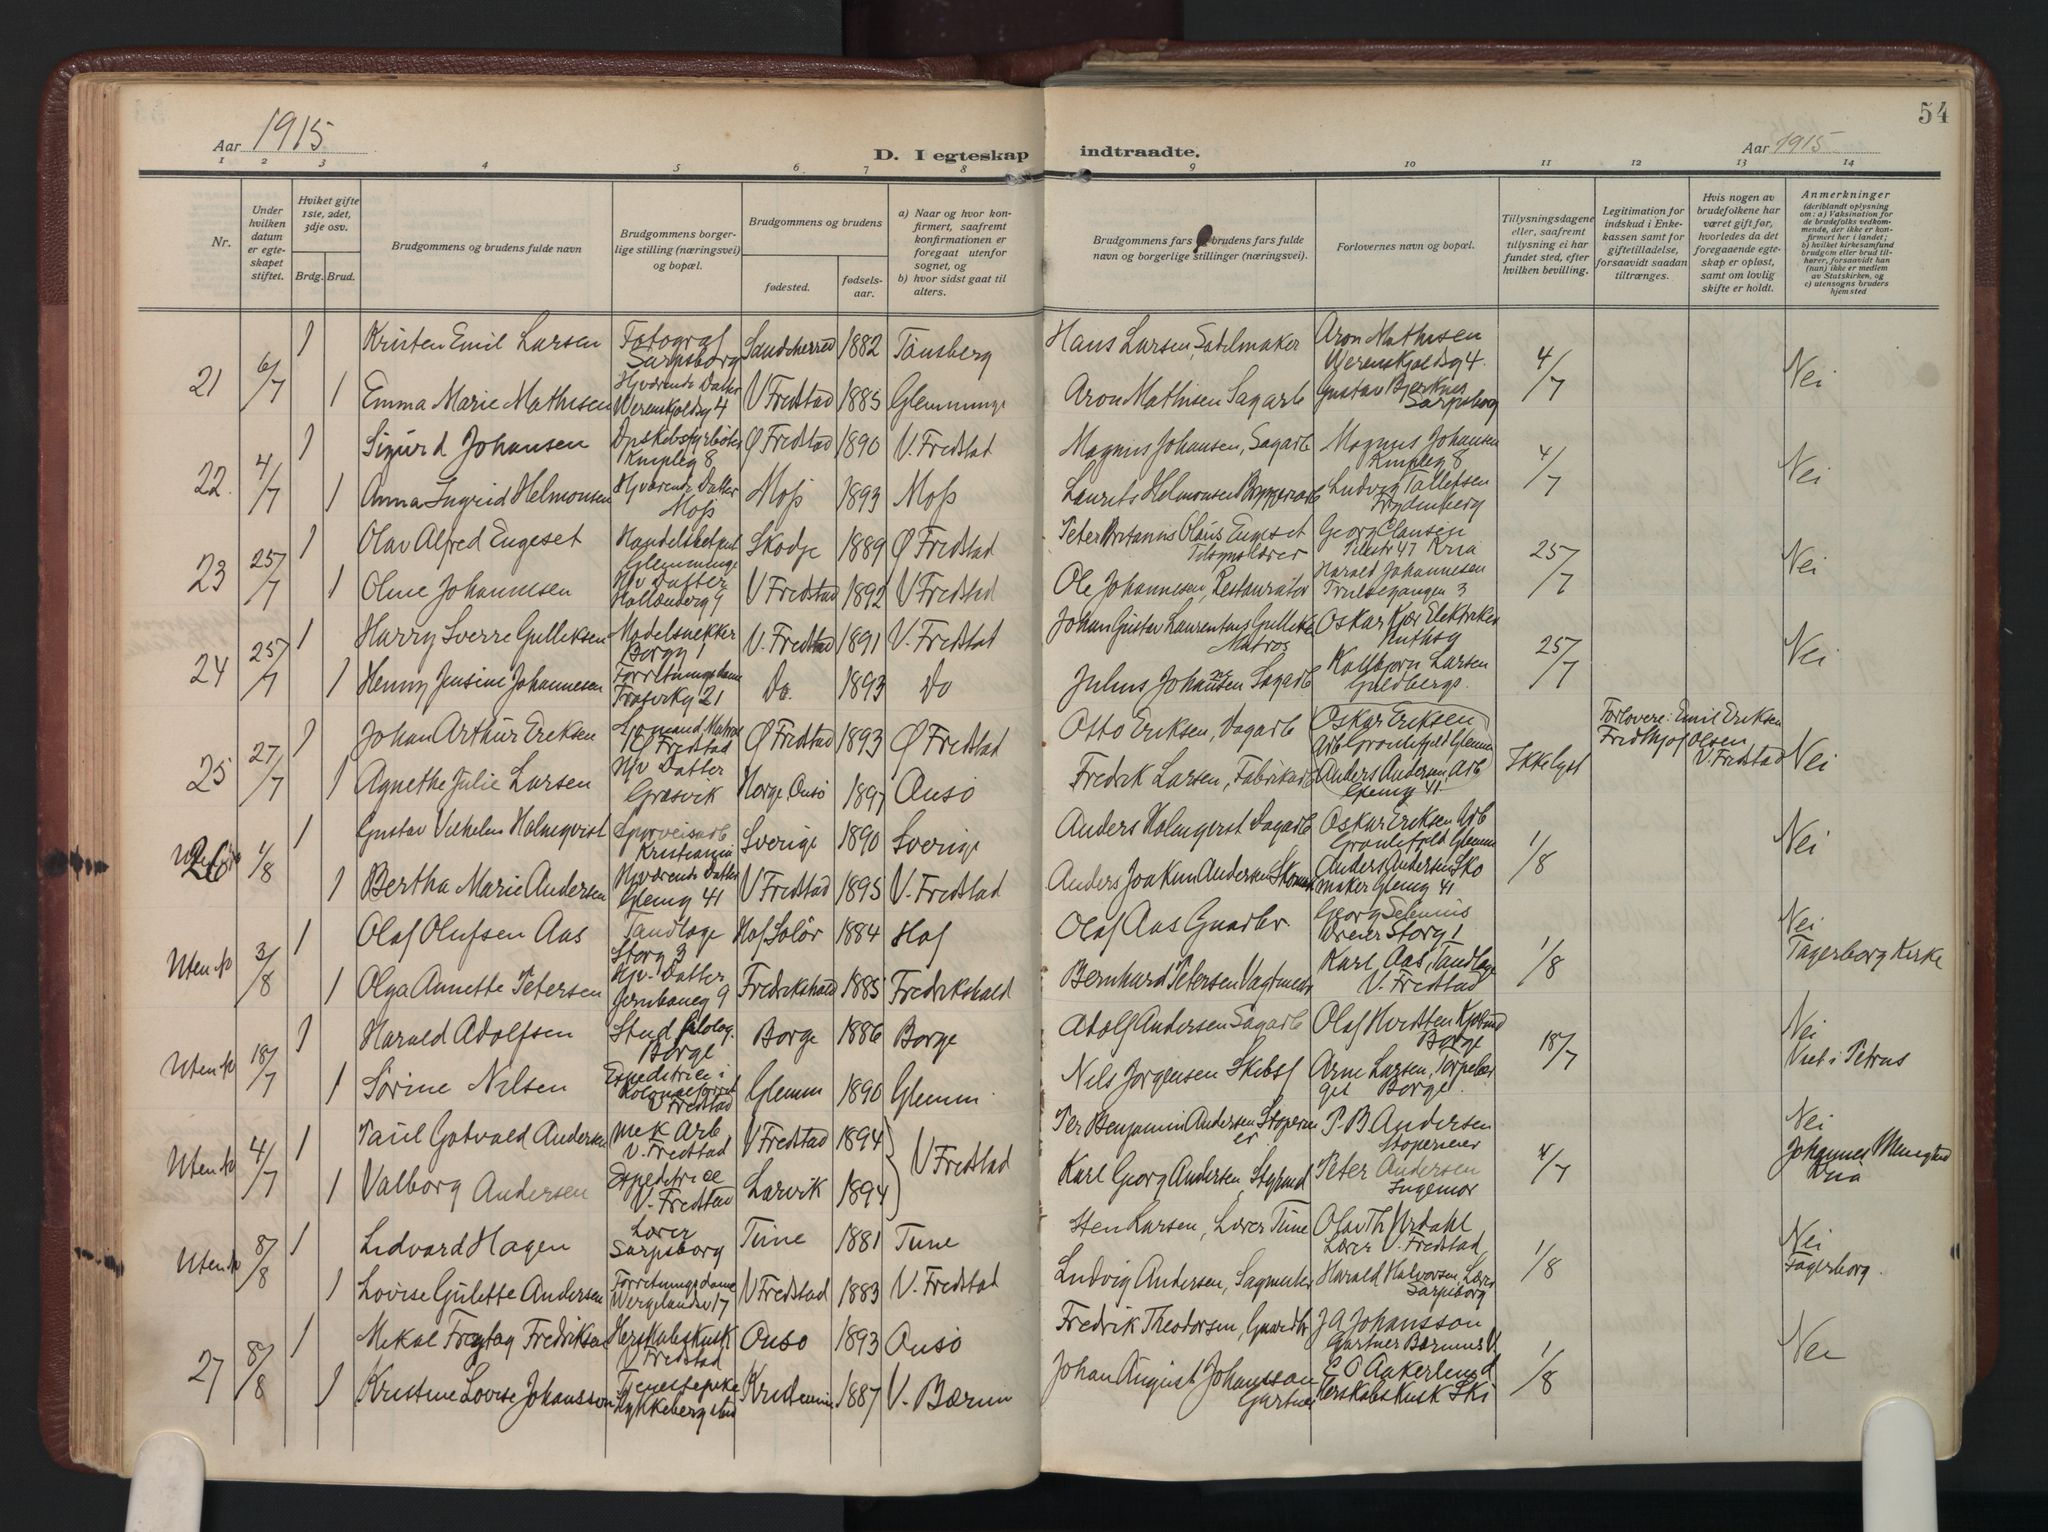 54
Aar 1915
D. I egteskap indtraadte.
Aar 1915
1 2 3 4 5 6 7 8 9 10 11 12 13 14
Nr.
Under hvilken datum er egteskapet stiftet.
Hviket gifte 1ste, 2det, 3dje osv.
Brdg. Brud.
Brudgommens og brudens fulde navn
Brudgommens borgerlige stilling (næringsvei) og bopæl.
Brudgommens og brudens
fødested.
fødselsaar.
a) Naar og hvor konfirmert, saafremt konfirmationen er foregaat utenfor sognet, og
b) hvor sidst gaat til alters.
Brudgommens fars og brudens fars fulde navn og borgerlige stillinger (næringsvei).
Forlovernes navn og bopæl.
Tillysningsdagene eller, saafremt tillysning ei har fundet sted, efter hvilken bevilling.
Legitimation for indskud i Enkekassen samt for giftetilladelse, forsaavidt saadan tiltrænges.
Hvis nogen av brudefolkene har været gift før, hvorledes da det foregaaende egteskap er opløst, samt om lovlig skifte er holdt.
Anmerkninger
(deriblandt oplysning om: a) Vaksination for de brudefolks vedkommende, der ikke er konfirmert her i landet; b) hvilket kirkesamfund brudgom eller brud tilhører, forsaavidt han (hun) ikke er medlem av Statskirken, og c) utensogns bruders hjemsted
21 6/7 1 Kristen Emil Larsen Fotograf Sarpsborg Sandeherred 1882 Tønsberg Hans Larsen, Sadelmaker Aron Mathisen Werenskjoldsg 4. 4/7 Nei
1 Emma Marie Mathisen Hjværende Datter Werenskjoldsg 4 V Fredstad 1885 Glemminge Aron Mathisen Sagarb Gustav Bjerknes Sarpsborg
22. 4/7 1 Sigurd Johansen Ø Fredstad 1890 V. Fredstad Magnus Johansen, Sagarb Magnus Johansen 8 4/7 Nei
1 Anna Ingrid Helmonsen Hjværende Datter Moss Moss 1893 Moss Laurits Helmonsen Ludvig Tallefsen Frydenberg
23 25/7 1 Olav Alfred Engeset Glemminge Skodje 1889 Ø Fredstad Peter Olaus Engeset Tilsynslærer Georg Clausen 47 Kria 25/7 Nei
1 Oline Johannesen Hjv Datter V Fredstad 1892 V Fredstad Ole Johannesen, Restauratør Harald Johannesen 3
24 25/7 1 Harry Sverre Gulliksen Modelsnekker Borgg 1 V. Fredstad 1891 V. Fredstad Johan Gustav Laurentius Matros Oskar Kjær Elektriker 25/7 Nei
1 Henny Jensine Johannesen Forretningsdame 21 Do. 1893 Do Julius Johannesen Sagarb Kolbjørn Larsen Guldbergs.
25 27/7 1 Johan Arthur Eriksen Ø Fredstad Ø Fredstad 1893 Ø Fredstad Otto Eriksen, Dagarb Oskar Eriksen Arb Glemm Ikke lyst Forlovere: Emil Eriksen Fredthjof Olsen V. Fredstad Nei
1 Agnethe Julie Larsen Hjv Datter Græsvik Norge, Onsø 1897 Onsø Fredrik Larsen, Fabrikarb Anders Andersen Arb Glemg 41
26 Uten № 1/8 1 Gustav Vilhelm Holmqvist Sporveisarb Kristiania Sverige 1890 Sverige Anders Dagarb Oskar Eriksen Arb Glemm 1/8 Nei
1 Bertha Marie Andersen Hjværende Datter Glemg 41 V Fredstad 1895 V. Fredstad Anders Joakim Andersen Anders Andersen Skomaker Glemg 41
Uten № 3/8 1 Olaf Olufsen Aas Tandlæge Storg 3 Hof Solør 1884 Hof Olaf Aas Gaardbr. Georg Selenius Storg 1 1/8 Nei Fagerborg Kirke
1 Olga Annette Petersen Hjv. Datter Jernbaneg 9 Fredrikshald 1885 Fredrikshald Bernhard Petersen Karl Aas, Tandlæge V. Fredstad
Uten № 18/7 1 Harald Adolfsen Stud filolog. Borge Borge 1886 Borge Adolf Andersen Sagarb Olaf Borge 18/7 Nei Viet i Petrus
1 Sørine Nilsen Expeditrice i V Fredstad Glemm 1890 Glemm. Nils Jørgensen Skibsf Arne Larsen, Borge
Uten № 4/7 1 Paul Gotvald Andersen Mek Arb V. Fredstad V Fredstad 1894 V Fredstad Per Benjamin Andersen P. B Andersen 4/7 Nei Johannes Kria
1 Valborg Andersen Expeditrice V. Fredstad Larvik 1894 Karl Georg Andersen Styrmd Peter Andersen
Uten № 8/8 1 Edvard Hagen Lærer Sarpsborg Tune 1881 Tune Sten Larsen, Lærer Tune Olav Th Urdahl Lærer V. Fredstad, 1/8 Nei Fagerborg.
1 Lovise Gulette Andersen Forretningsdame Wergelandsv 17 V Fredstad 1883 V. Fredstad Ludvig Andersen, Sagmester Harald Halvorsen, Lærer Sarpsborg
27 8/8 1 Mikal Freytag Fredriksen Herskabskusk V Fredstad Onsø 1893 Onsø Fredrik Theodorsen, Gaardbr J A Johansson Gartner 1/8 Nei
1 Kristine Lovise Johansson Tjenestepike Kristiania 1887 V. Bærum Johan August Johansson Gartner C O Aakerlund Herskabskusk Ski